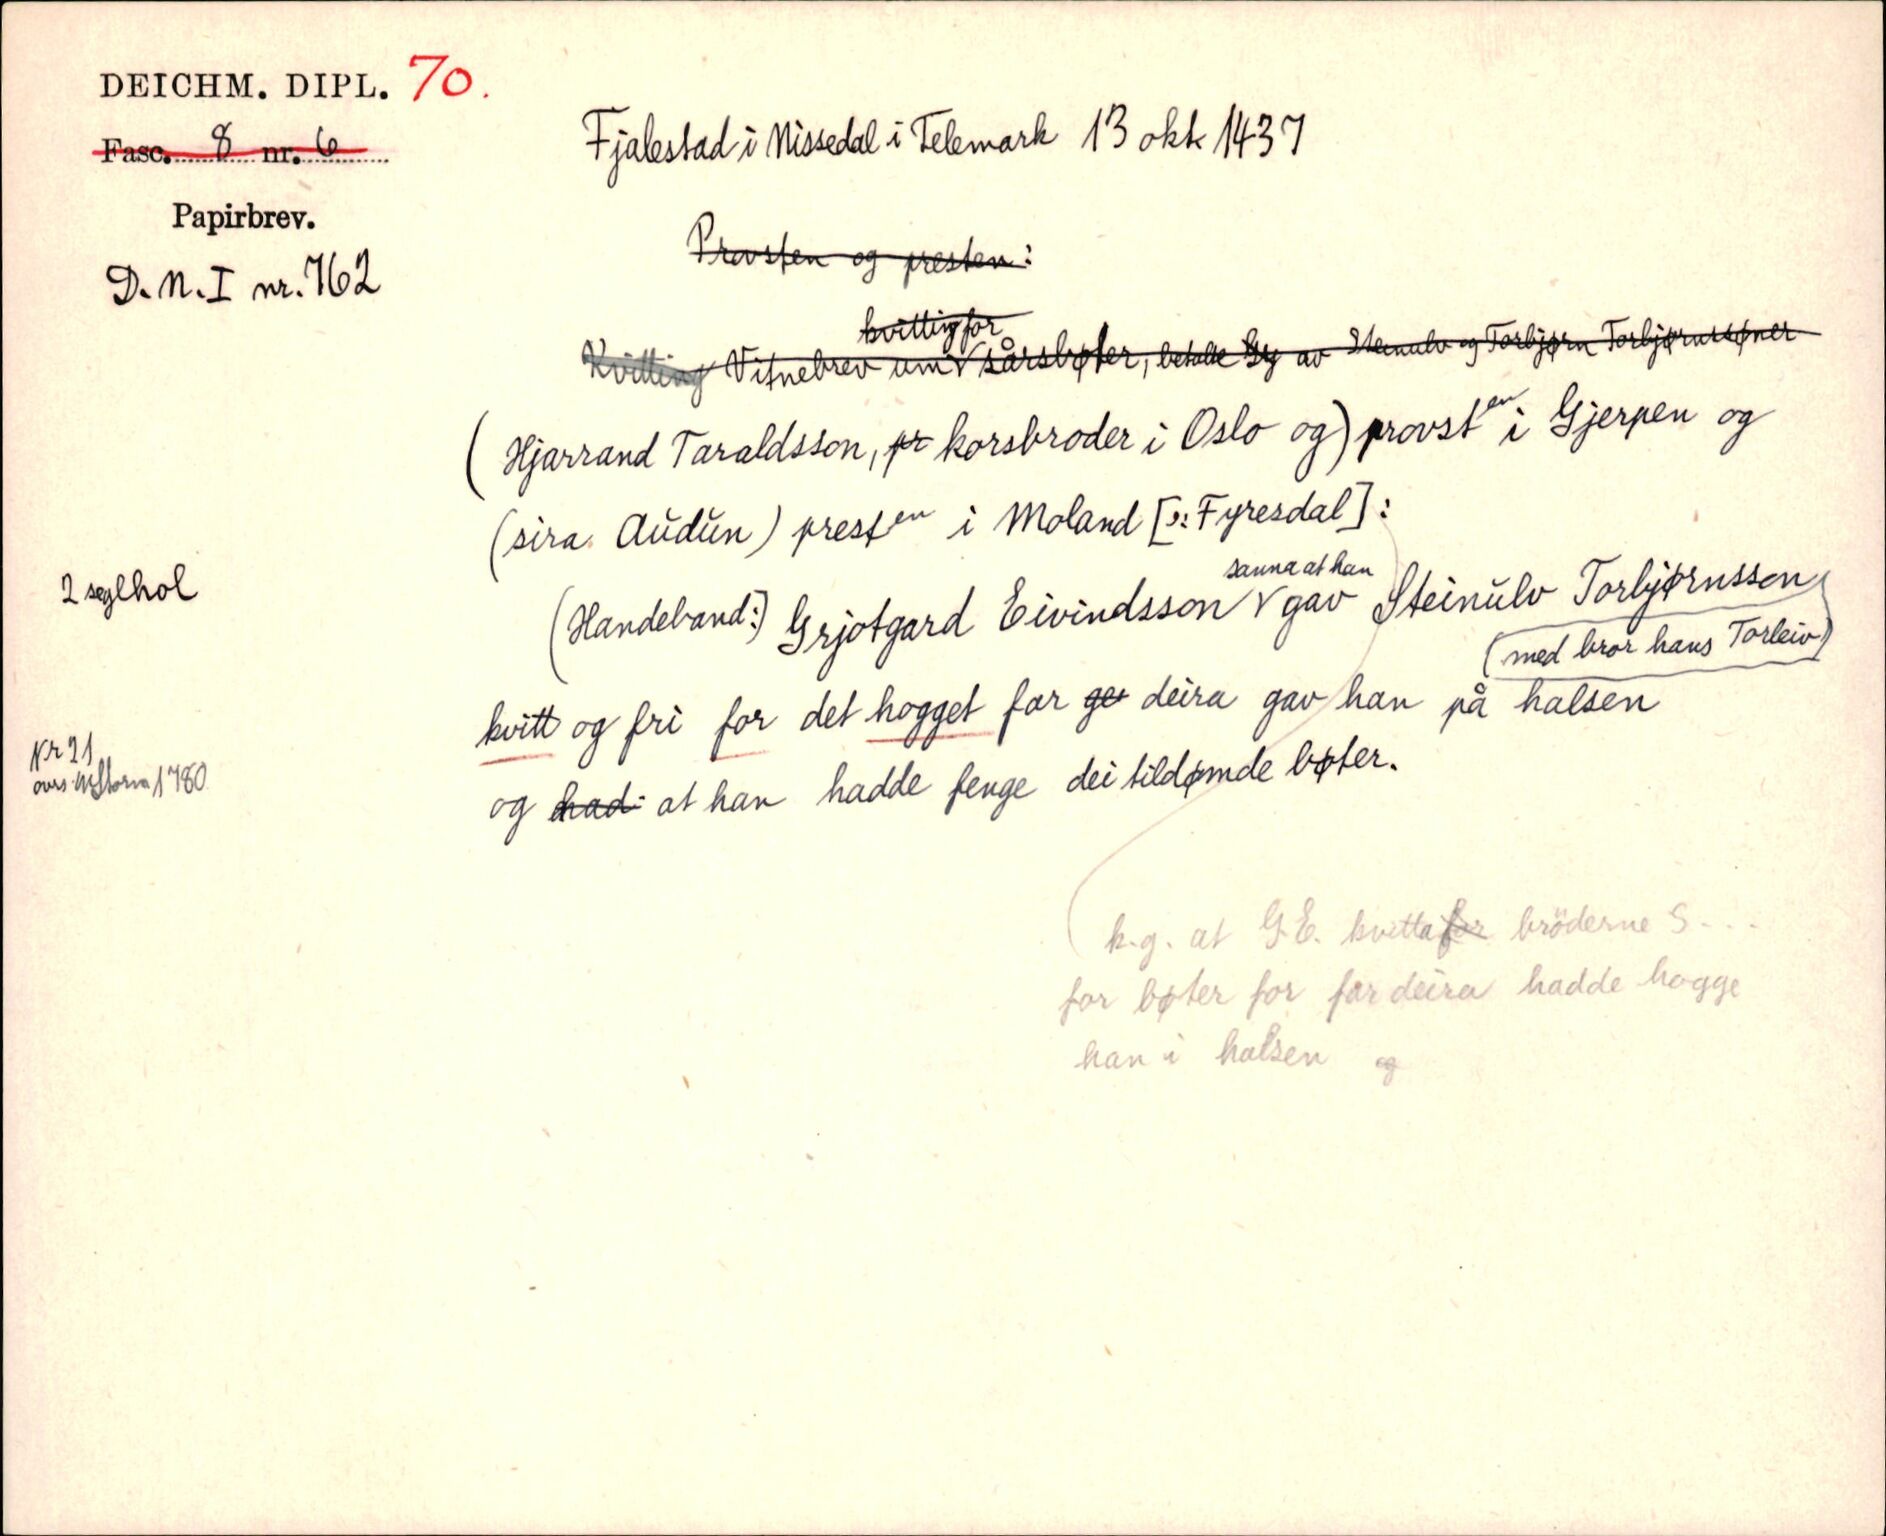 DEICHM. DIPL. 70.
Fasc. 8 nr. 6
Papirbrev.
D.N.I nr. 762
Fjalestad i Nissedal i Telemark 13 okt 1437
Provsten og presten:
kvitting for
Kvitting Vitnebrev um V sårsbøter, betalte av Steinulv og Torbjørn Torbjørnssøner
(Hjarrand Taraldsson, pr korsbroder i Oslo og) provsten i Gjerpen og
(sira Audŭn) presten i Moland [ɔ: Fyresdal]:
2 seglhol
sanna at han
(Handeband:) Grjotgard Eivindsson V gav Steinŭlv Torbjørnsson
(med bror hans Torleiv)
kvitt og fri for det hogget far ge deira gav han på halsen
og had at han hadde fenge dei tildømde bøter.
Nr 21
avs. 1780
k.g. at G.E. kvitta for bröderne S...
for bøter for far deira hadde hogge
han i halsen og